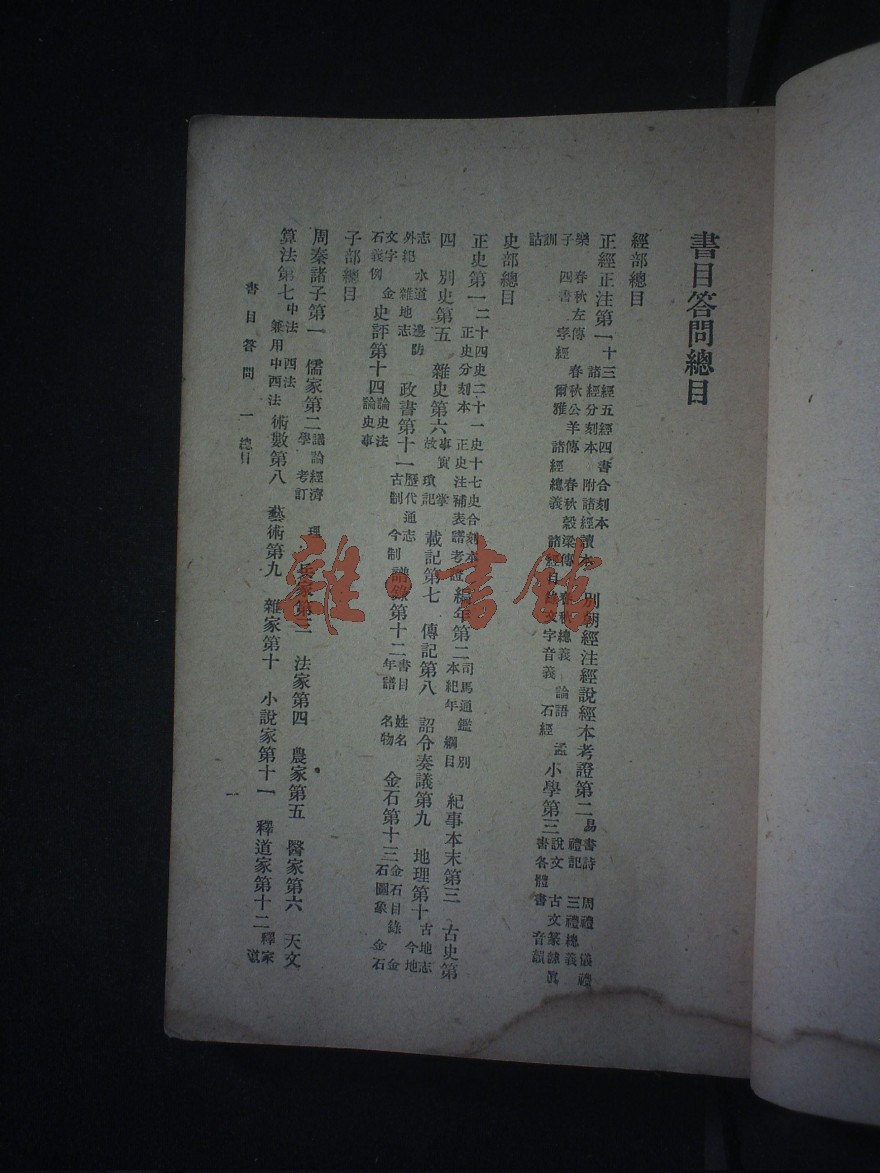 書目答問總目
經部總目
正經正注第一 十三經五經四書合刻本 諸經分刻本 附諸經讀本 別朝經注經說經本考證第二 易 書 詩 周禮 儀禮 禮記 三禮總義
樂 春秋左傳 春秋公羊傳 春秋穀梁傳 春秋總義 論語 孟子 四書 孝經 爾雅 諸經總義 諸經目錄文字音義 石經 小學第三 說文 古文篆隸眞書各體書 音韻
訓詁
史部總目
正史第一 二十四史二十一史十七史合刻本 正史分刻本 正史注補表譜考證 編年第二 司馬通鑑 別本紀年 綱目 紀事本末第三 古史第
四 別史第五 雜史第六 事實 掌故 瑣記 載記第七 傳記第八 詔令奏議第九 地理第十 古地志 今地
志 水道 邊防 外紀 雜地志 政書第十一 歷代通志 古制 今制 譜錄第十二 書目 姓名 年譜 名物 金石第十三 金石目錄 金石圖象 金石
文字 金石義例 史評第十四 論史法 論史事
子部總目
周秦諸子第一 儒家第二 議論經濟 理學 考訂 兵家第三 法家第四 農家第五 醫家第六 天文
算法第七 中法 西法 兼用中西法 術數第八 藝術第九 雜家第十 小說家第十一 釋道家第十二 釋家
書目答問 一 總目
一
雜·書館